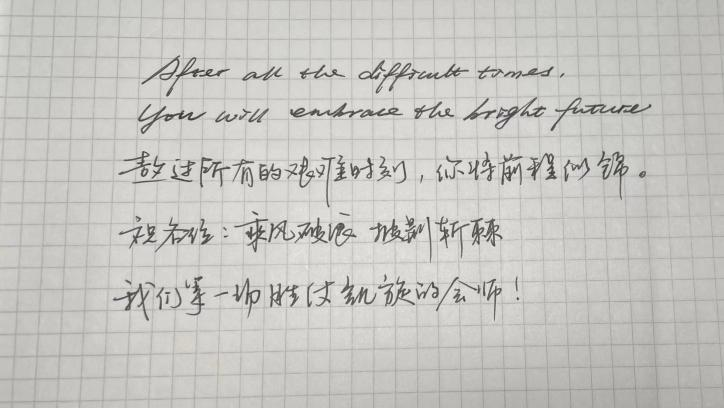 After all the difficult times,
You will embrace the bright future
熬过所有的艰难时刻，你将前程似锦。
祝各位：乘风破浪 披荆斩棘
我们等一场胜仗凯旋的会师！